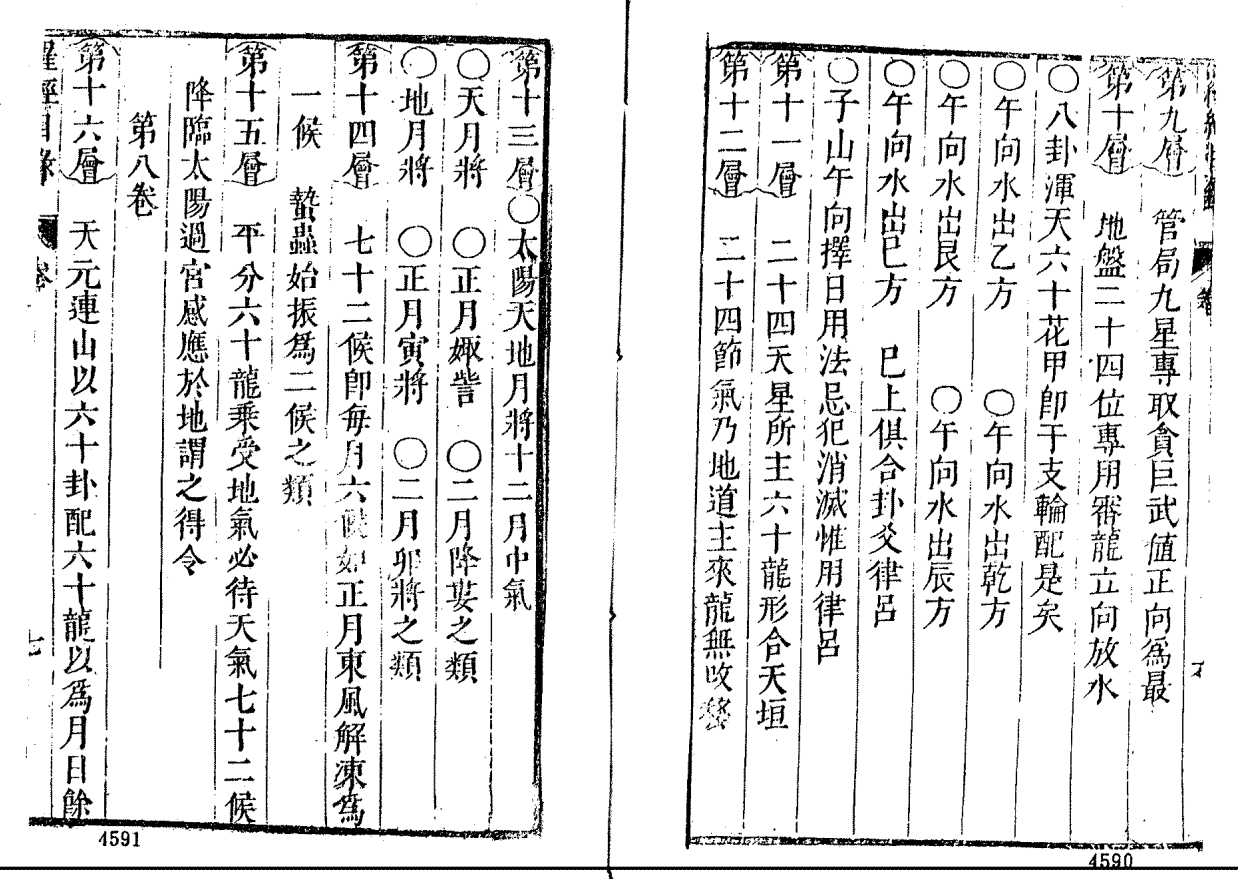 第九層 管局九星專取貪巨武値正向爲最
第十層 地盤二十四位專用審龍立向放水
○八卦渾天六十花甲卽干支輪配是矣
○午向水出乙方 ○午向水出乾方
○午向水出艮方 ○午向水出辰方
○午向水出巳方 巳上俱合卦爻律呂
○子山午向擇日用法忌犯消滅惟用律呂
第十一層 二十四天星所主六十龍形合天垣
第十二層 二十四節氣乃地道主來龍無攺移
4590
第十三層○太陽天地月將十二月中氣
○天月將 ○正月娵訾 ○二月降婁之類
○地月將 ○正月寅將 ○二月卯將之類
第十四層 七十二候卽每月六候如正月東風解凍爲
一候 蟄蟲始振爲二候之類
第十五層 平分六十龍乘受地氣必待天氣七十二候
降臨太陽過宮感應於地謂之得令
第八卷
第十六層 天元連山以六十卦配六十龍以爲月日餘
羅經目錄 卷 七
4591